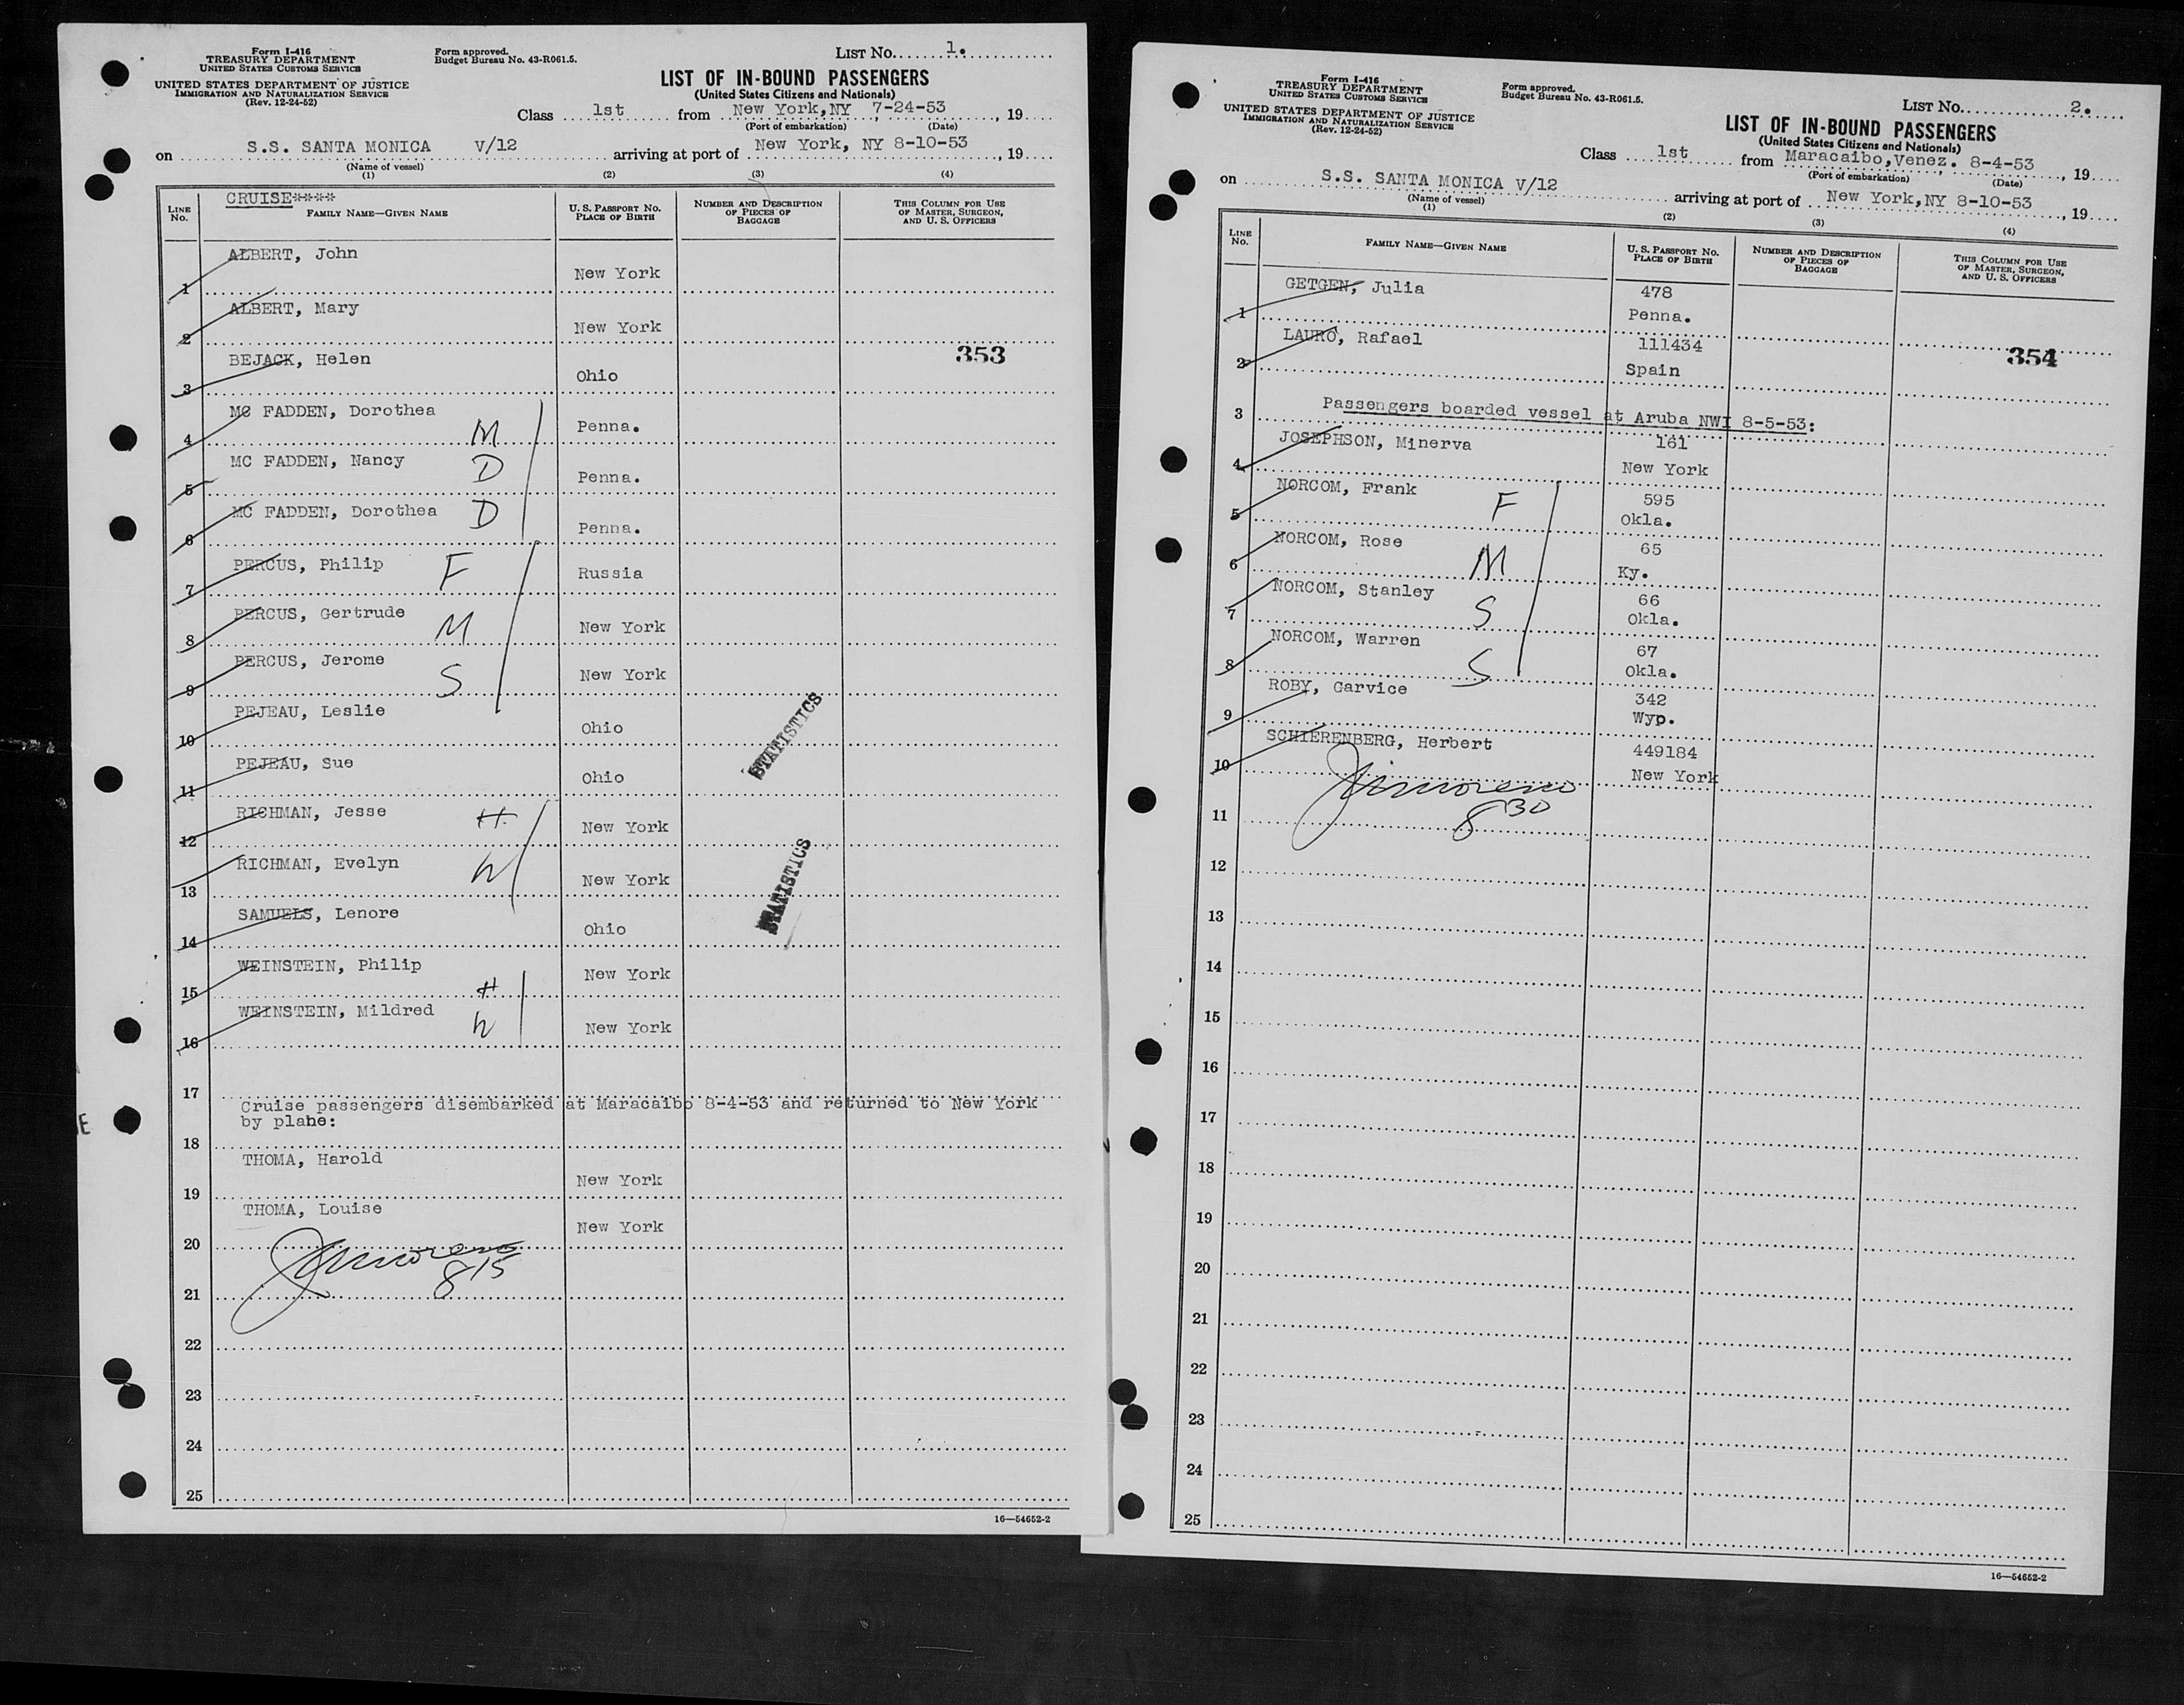 Form I-416
TREASURY DEPARTMENT
UNITED STATES CUSTOMS SERVICE
UNITED STATES DEPARTMENT OF JUSTICE
IMMIGRATION AND NATURALIZATION SERVICE
(Rev. 12-24-52)
Form approved.
Budget Bureau No. 43-R061.5.
LIST No. 1.
LIST OF IN-BOUND PASSENGERS
(United States Citizens and Nationals)
Class 1st from New York,NY 7-24-53, 19
(Port of embarkation) (Date)
on S.S. SANTA MONICA V/12 arriving at port of New York, NY 8-10-53, 19
(Name of vessel)
(1) (2) (3) (4)
CRUISE****
LINE No. FAMILY NAME—GIVEN NAME U. S. PASSPORT NO. PLACE OF BIRTH NUMBER AND DESCRIPTION OF PIECES OF BAGGAGE THIS COLUMN FOR USE OF MASTER, SURGEON, AND U. S. OFFICERS
1 ALBERT, John New York
2 ALBERT, Mary New York
353
3 BEJACK, Helen Ohio
4 MC FADDEN, Dorothea M Penna.
5 MC FADDEN, Nancy D Penna.
6 MC FADDEN, Dorothea D Penna.
7 PERCUS, Philip F Russia
8 PERCUS, Gertrude M New York
9 PERCUS, Jerome S New York
10 PEJEAU, Leslie Ohio
STATISTICS
11 PEJEAU, Sue Ohio
12 RICHMAN, Jesse H New York
13 RICHMAN, Evelyn W New York
STATISTICS
14 SAMUELS, Lenore Ohio
15 WEINSTEIN, Philip H New York
16 WEINSTEIN, Mildred W New York
17
Cruise passengers disembarked at Maracaibo 8-4-53 and returned to New York
by plane:
18
19 THOMA, Harold New York
20 THOMA, Louise New York
8 15
21
22
23
24
25
16—54652-2
Form I-416
TREASURY DEPARTMENT
UNITED STATES CUSTOMS SERVICE
UNITED STATES DEPARTMENT OF JUSTICE
IMMIGRATION AND NATURALIZATION SERVICE
(Rev. 12-24-52)
Form approved.
Budget Bureau No. 43-R061.5.
LIST No. 2.
LIST OF IN-BOUND PASSENGERS
(United States Citizens and Nationals)
Class 1st from Maracaibo,Venez. 8-4-53, 19
(Port of embarkation) (Date)
on S.S. SANTA MONICA V/12 arriving at port of New York,NY 8-10-53, 19
(Name of vessel)
(1) (2) (3) (4)
LINE No. FAMILY NAME—GIVEN NAME U. S. PASSPORT NO. PLACE OF BIRTH NUMBER AND DESCRIPTION OF PIECES OF BAGGAGE THIS COLUMN FOR USE OF MASTER, SURGEON, AND U. S. OFFICERS
1 GETGEN, Julia 478 Penna.
2 LAURO, Rafael 111434 Spain
354
3 Passengers boarded vessel at Aruba NWI 8-5-53:
4 JOSEPHSON, Minerva 161 New York
5 NORCOM, Frank F 595 Okla.
6 NORCOM, Rose M 65 Ky.
7 NORCOM, Stanley S 66 Okla.
8 NORCOM, Warren S 67 Okla.
9 ROBY, Garvice 342 Wyp.
10 SCHIERENBERG, Herbert 449184 New York
8 30
11
12
13
14
15
16
17
18
19
20
21
22
23
24
25
16—54652-2